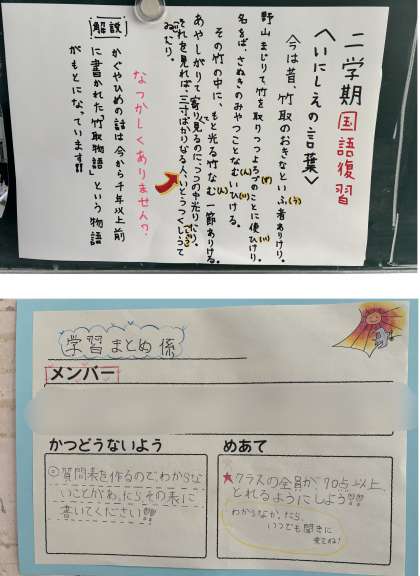 二学期国語復習
〈いにしえの言葉〉
今は昔、竹取のおきなといふ(う)者ありけり。
野山まじりて竹を取りつつよろづ(ず)のことに使ひ(い)けり。
名をば、さぬきのみやつことなむ(ん)いひ(い)ける。
その竹の中に、もと光る竹なむ(ん)一節ありける。
あやしがりて寄り見るのに、つつの中光りたり。
それを見れば、三寸ばかりなる人、いとうつくしうて
ゐ(い)たり。
なつかしくありません？
解説
かぐやひめの話は今から千年以上前
に書かれた「竹取物語」という物語
がもとになっています!!
学習まとめ係
メンバー
かつどうないよう
◎質問表を作るのでわからな
いことがあったらその表に
書いてください!!!
めあて
★クラスの全員が70点以上
とれるようにしよう!!!
わからなかったら
いつでも聞きに
来てね!